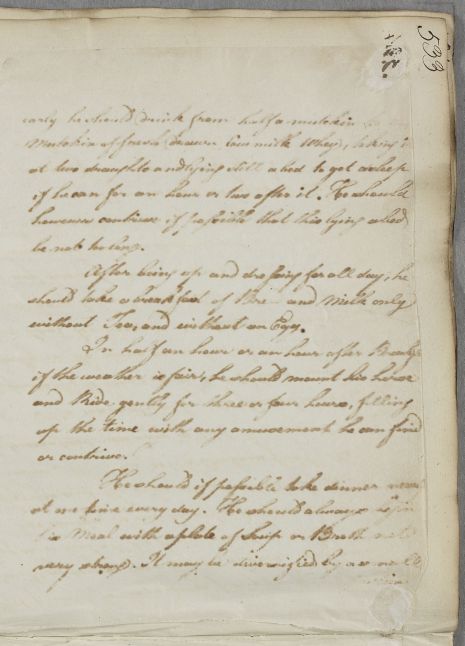 533
early he should drink from half a mutchkin
Mutchkin of fresh drawn Cow milk Whey, taking it
at two draughts and lying still abed to get asleep
if he can for an hour or two after it. He should
however contrive if possible that this lying abed
be not too long.
After being up and dressing for all day, he
should take a breakfast of Bread and Milk only
without Tea, and without an Egg.
In half an hour or an hour after Breakft
if the weather is fair, he should mount his horse
and Ride gently for three or four hours, filling
up the time with any amusement he can find
or contrive.
He should if possible take dinner
at one time every day. He should always begin
his Meal with a plate of Soup or Broth not
very strong. It may be diversified by